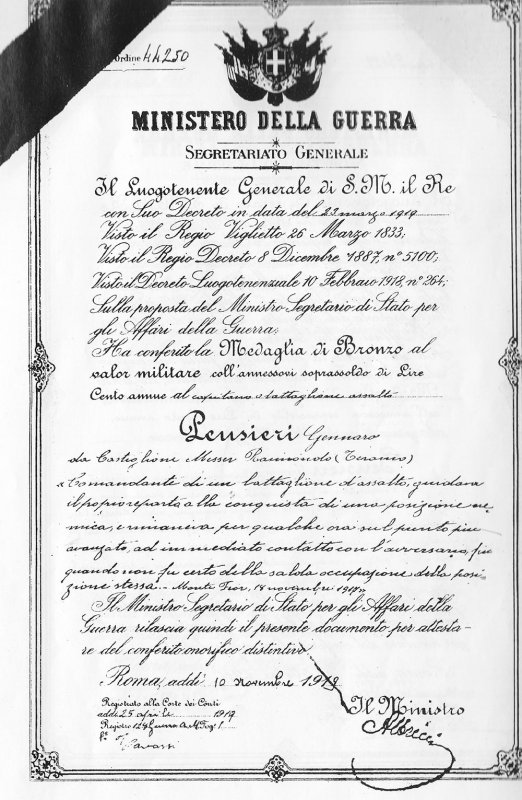 Ordine 44250
MINISTERO DELLA GUERRA
SEGRETARIATO GENERALE
Il Luogotenente Generale di S.M. il Re
con Suo Decreto in data del 23 marzo 1919
Visto il Regio Viglietto 26 Marzo 1833;
Visto il Regio Decreto 8 Dicembre 1887, nº 5100;
Visto il Decreto Luogotenenziale 10 Febbraio 1918, nº 264;
Sulla proposta del Ministro Segretario di Stato per
gli Affari della Guerra;
Ha conferito la Medaglia di Bronzo al
valor militare coll'annessovi soprassoldo di Lire
Cento annue al capitano battaglione assalto
Pensieri Gennaro
da Castiglione Messer Raimondo (Teramo)
«Comandante di un battaglione d'assalto, guidava
il proprio reparto alla conquista di una posizione ne-
mica, e rimaneva per qualche ora sul punto più
avanzato, ad immediato contatto con l'avversario, fin
quando non fu certo della salda occupazione della posi-
zione stessa. - Monte 18 novembre 1917»
Il Ministro Segretario di Stato per gli Affari della
Guerra rilascia quindi il presente documento per attesta-
re del conferito onorifico distintivo.
Roma, addì 10 novembre 1919
Registrato alla Corte dei Conti
addì 25 aprile 1919
Registro 124 Guerra
Il Ministro
Albricci